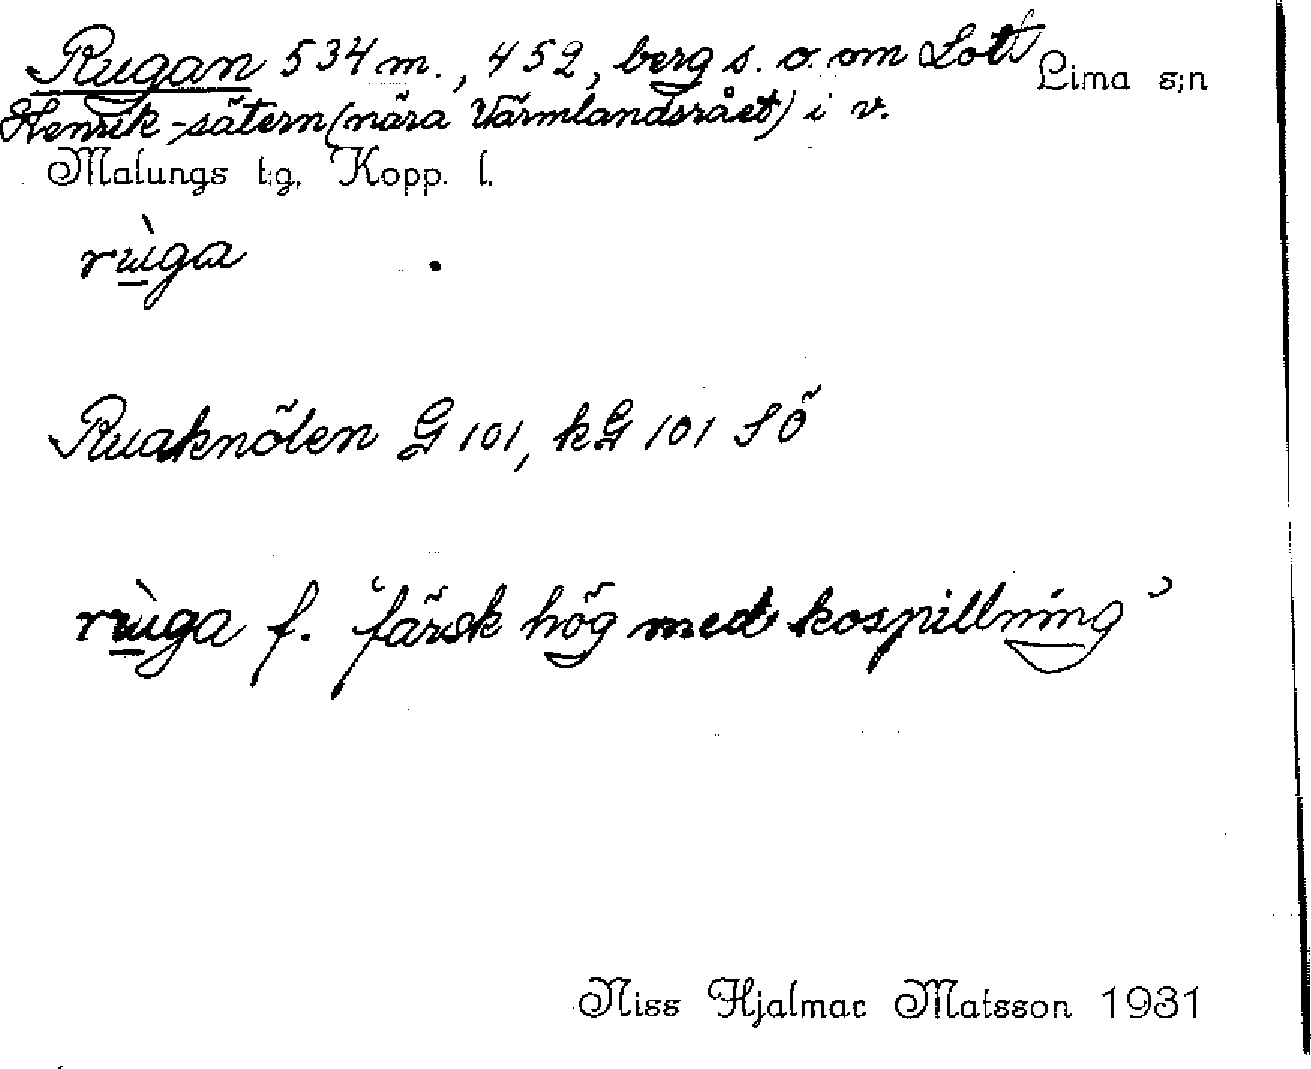 Rugan 534 m., 452, berg s. o. om Lott Lima s:n
Henrik-sätern (nära Värmlandsrået) i v.
Malungs t:g, Kopp. l.
rùga
Ruaknölen G 101, kG 101 SÖ
rùga f. 'färsk hög med kospillning'
Niss Hjalmar Matsson 1931